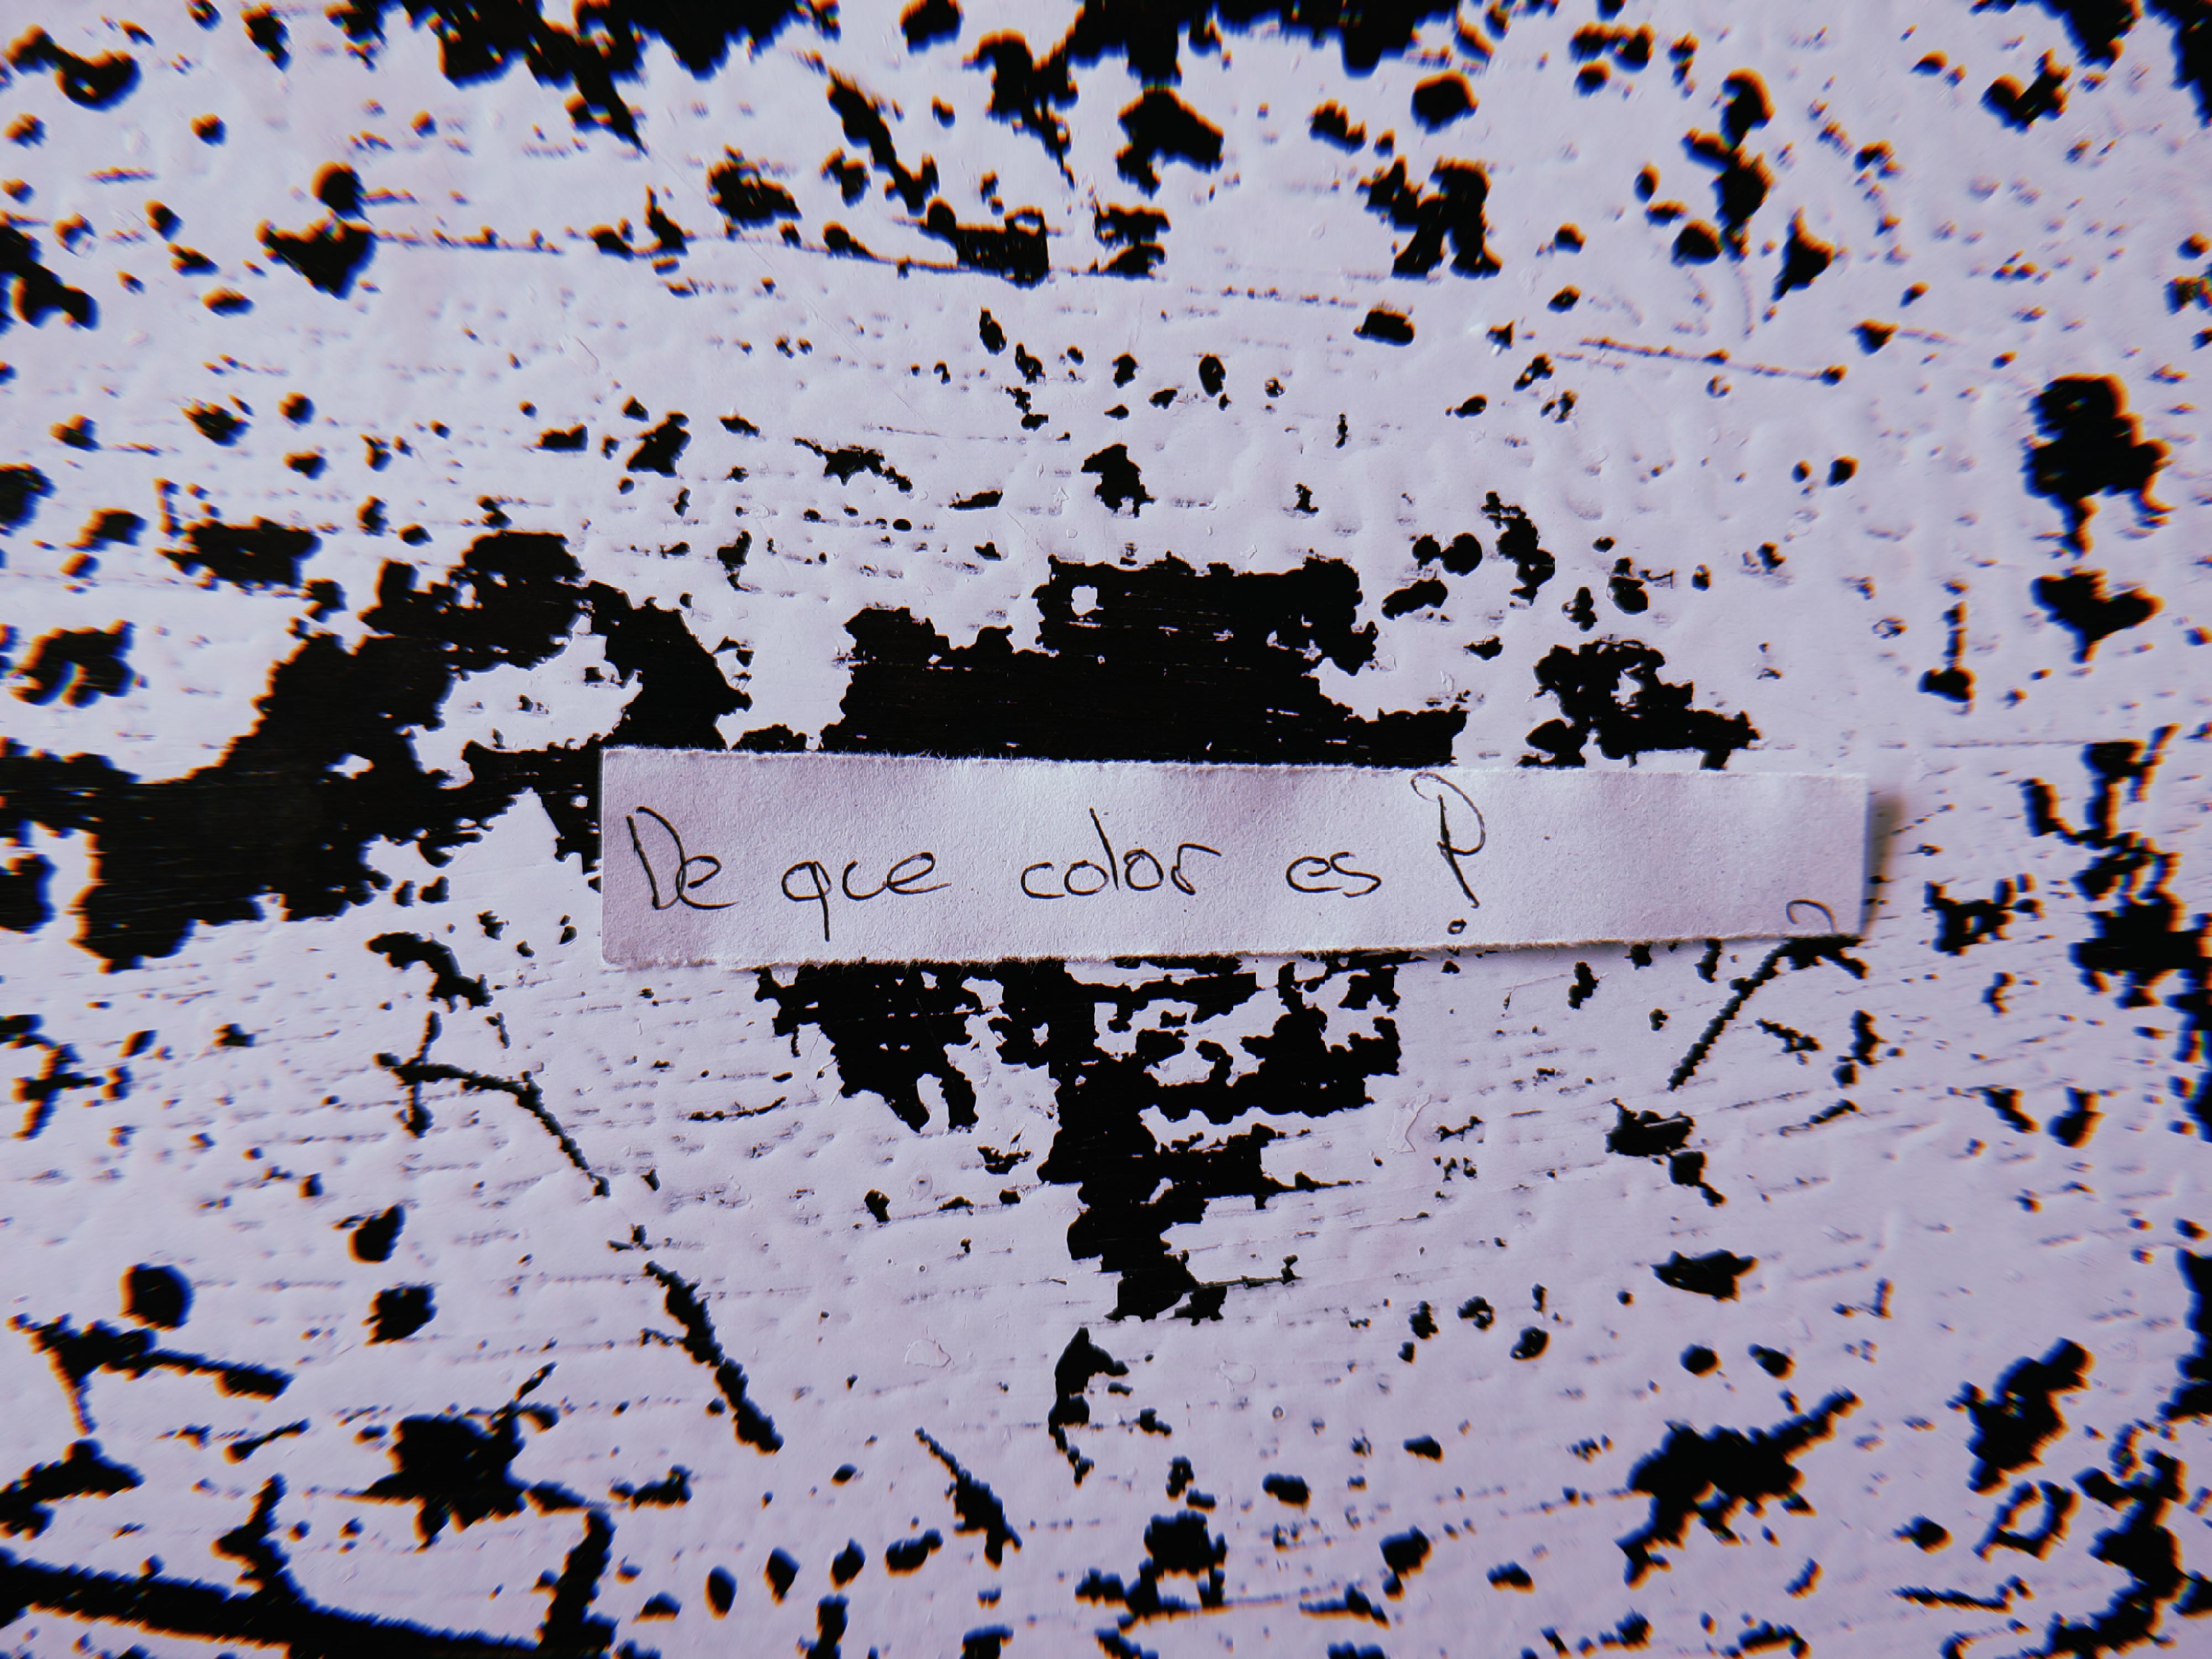 De que color es ?